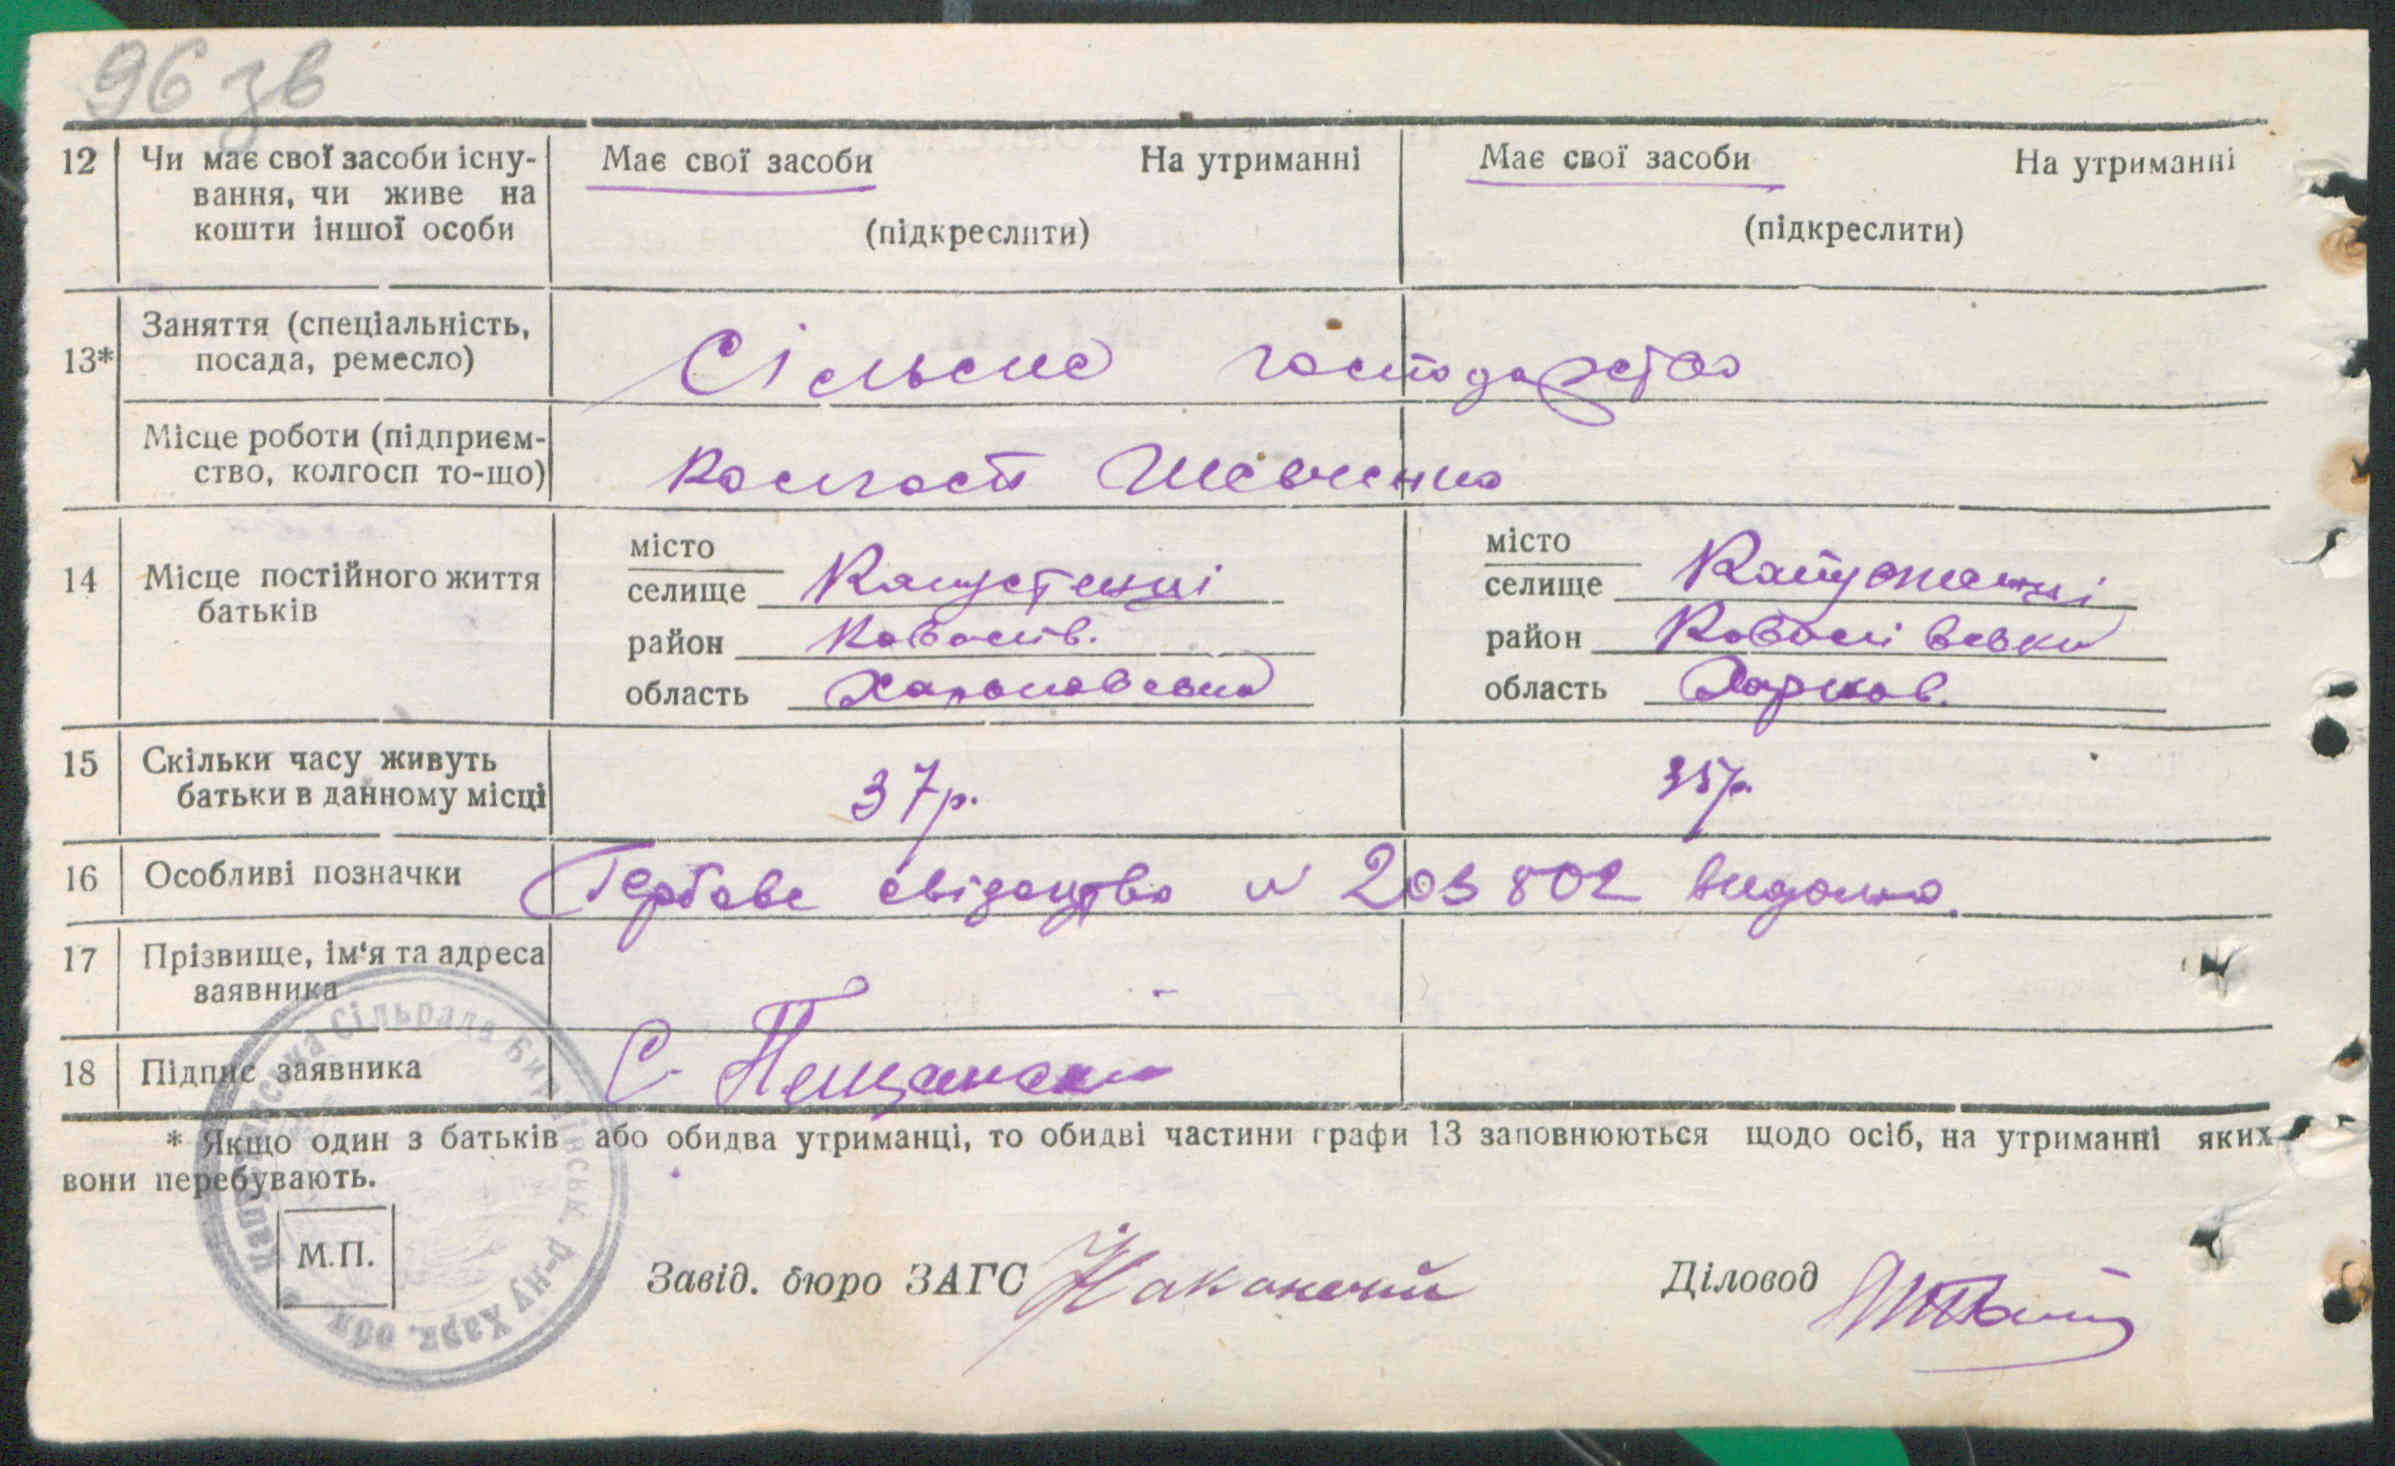 96 зв
12 Чи має свої засоби існу- Має свої засоби На утриманні Має свої засоби На утриманні
вання, чи живе на
кошти іншої особи (підкреслити) (підкреслити)
Заняття (спеціальність,
13* посада, ремесло) Сільське господарство
Місце роботи (підприєм-
ство, колгосп то-що) Колгосп Шевченка
місто місто
14 Місце постійного життя селище Капустенці селище
батьків район район
область Харьковська область Харков.
15 Скільки часу живуть 37р. 35р.
батьки в данному місці
16 Особливі позначки Гербове свідоцтво N 203802 видано.
17 Прізвище, ім'я та адреса
заявника
18 Підпис заявника С. Пещанск
* Якщо один з батьків або обидва утриманці, то обидві частини графи 13 заповнюються щодо осіб, на утриманні яких
вони перебувають.
М.П.
Завід. бюро ЗАГС Діловод
Сільрада р-ну Харк. обл.